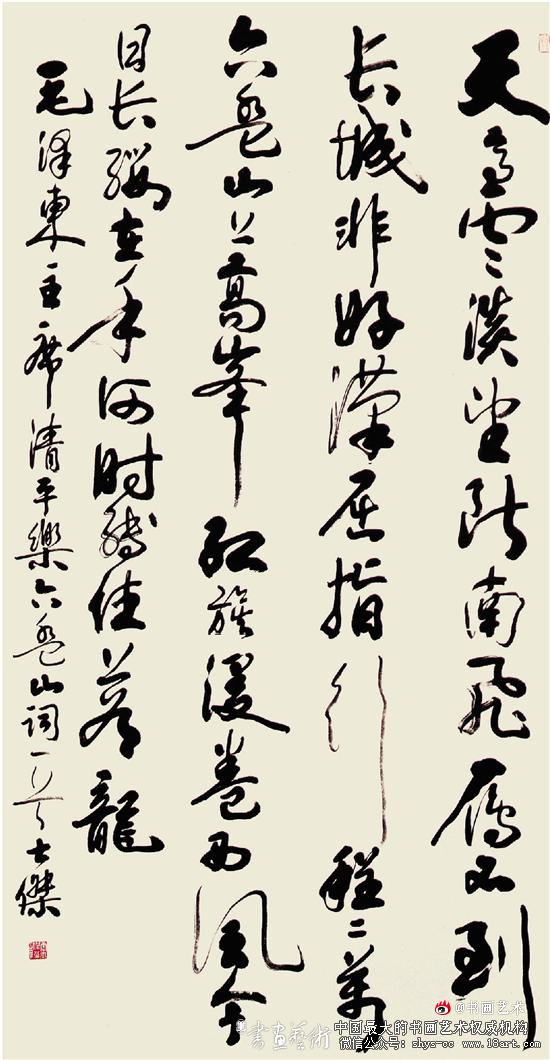 天高雲淡望断南飛雁不到
长城非好漢屈指行程二萬
六盘山上高峯红旗漫卷西风今
日长缨在手何时缚住苍龍
毛泽東主席清平樂六盘山词一首 士傑
@书画艺术
書畫藝術
中国最大的书画艺术权威机构
微信公众号：shys-cc www.18art.com